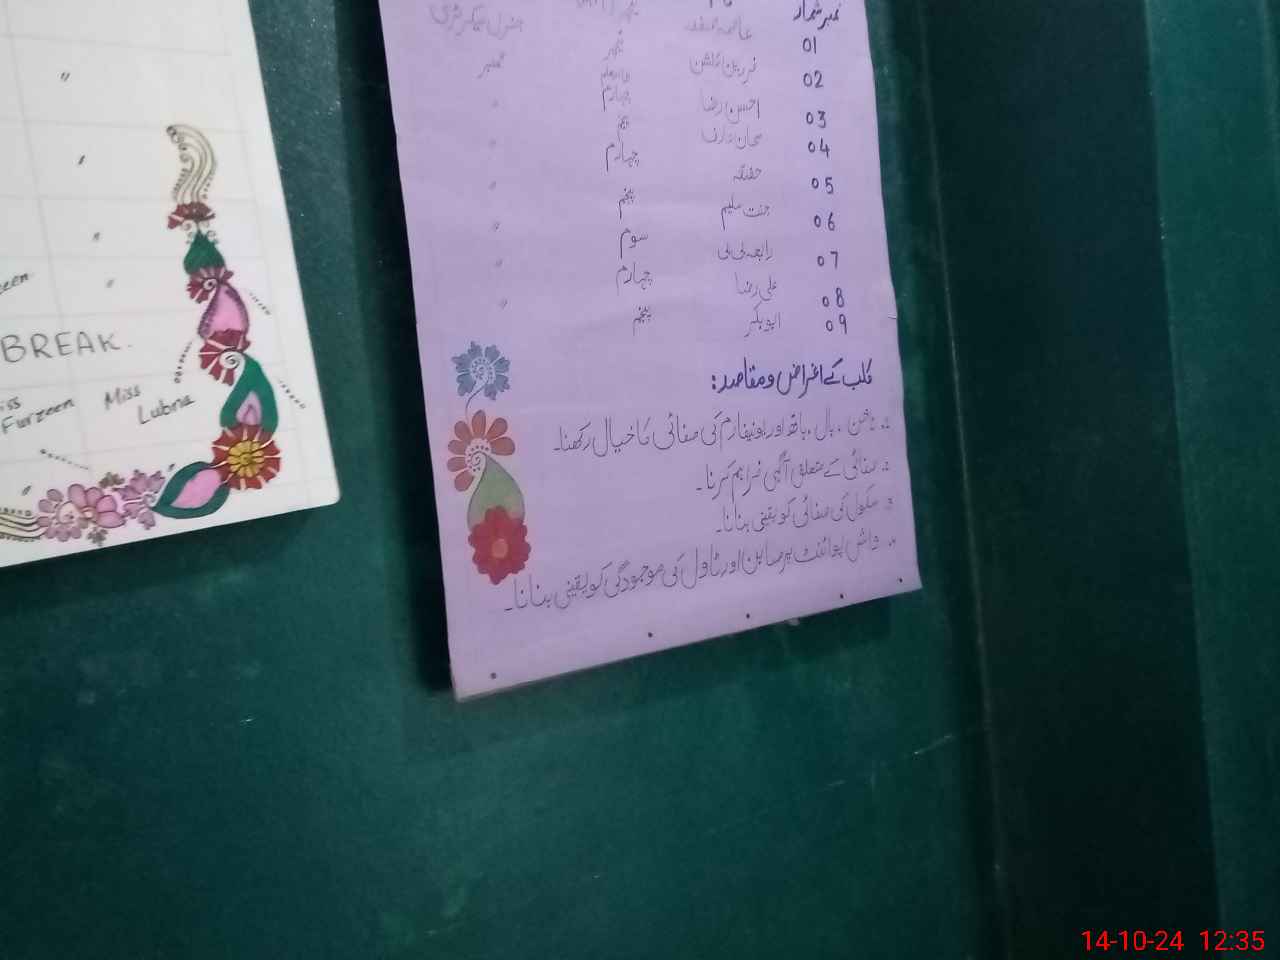 نمبر شمار
جنرل سیکرٹری
01
02 فرمین افشن ممبر
03 احسن رضا چہارم "
04 سبحان عارف "
05 حفصہ چہارم "
06 جنت سلیم پنجم "
07 رابعہ بی بی سوم "
08 علی رضا چہارم "
09 ابوبکر پنجم
کلب کے اغراض و مقاصد:
ناخن، بال، ہاتھ اور یونیفارم کی صفائی کا خیال رکھنا۔
صفائی کے متعلق آگہی فراہم کرنا۔
سکول کی صفائی کو یقینی بنانا۔
واش پوائنٹ پر صابن اور ٹاول کی موجودگی کو یقینی بنانا۔
BREAK.
Furzeen
Miss
Lubna
14-10-24 12:35